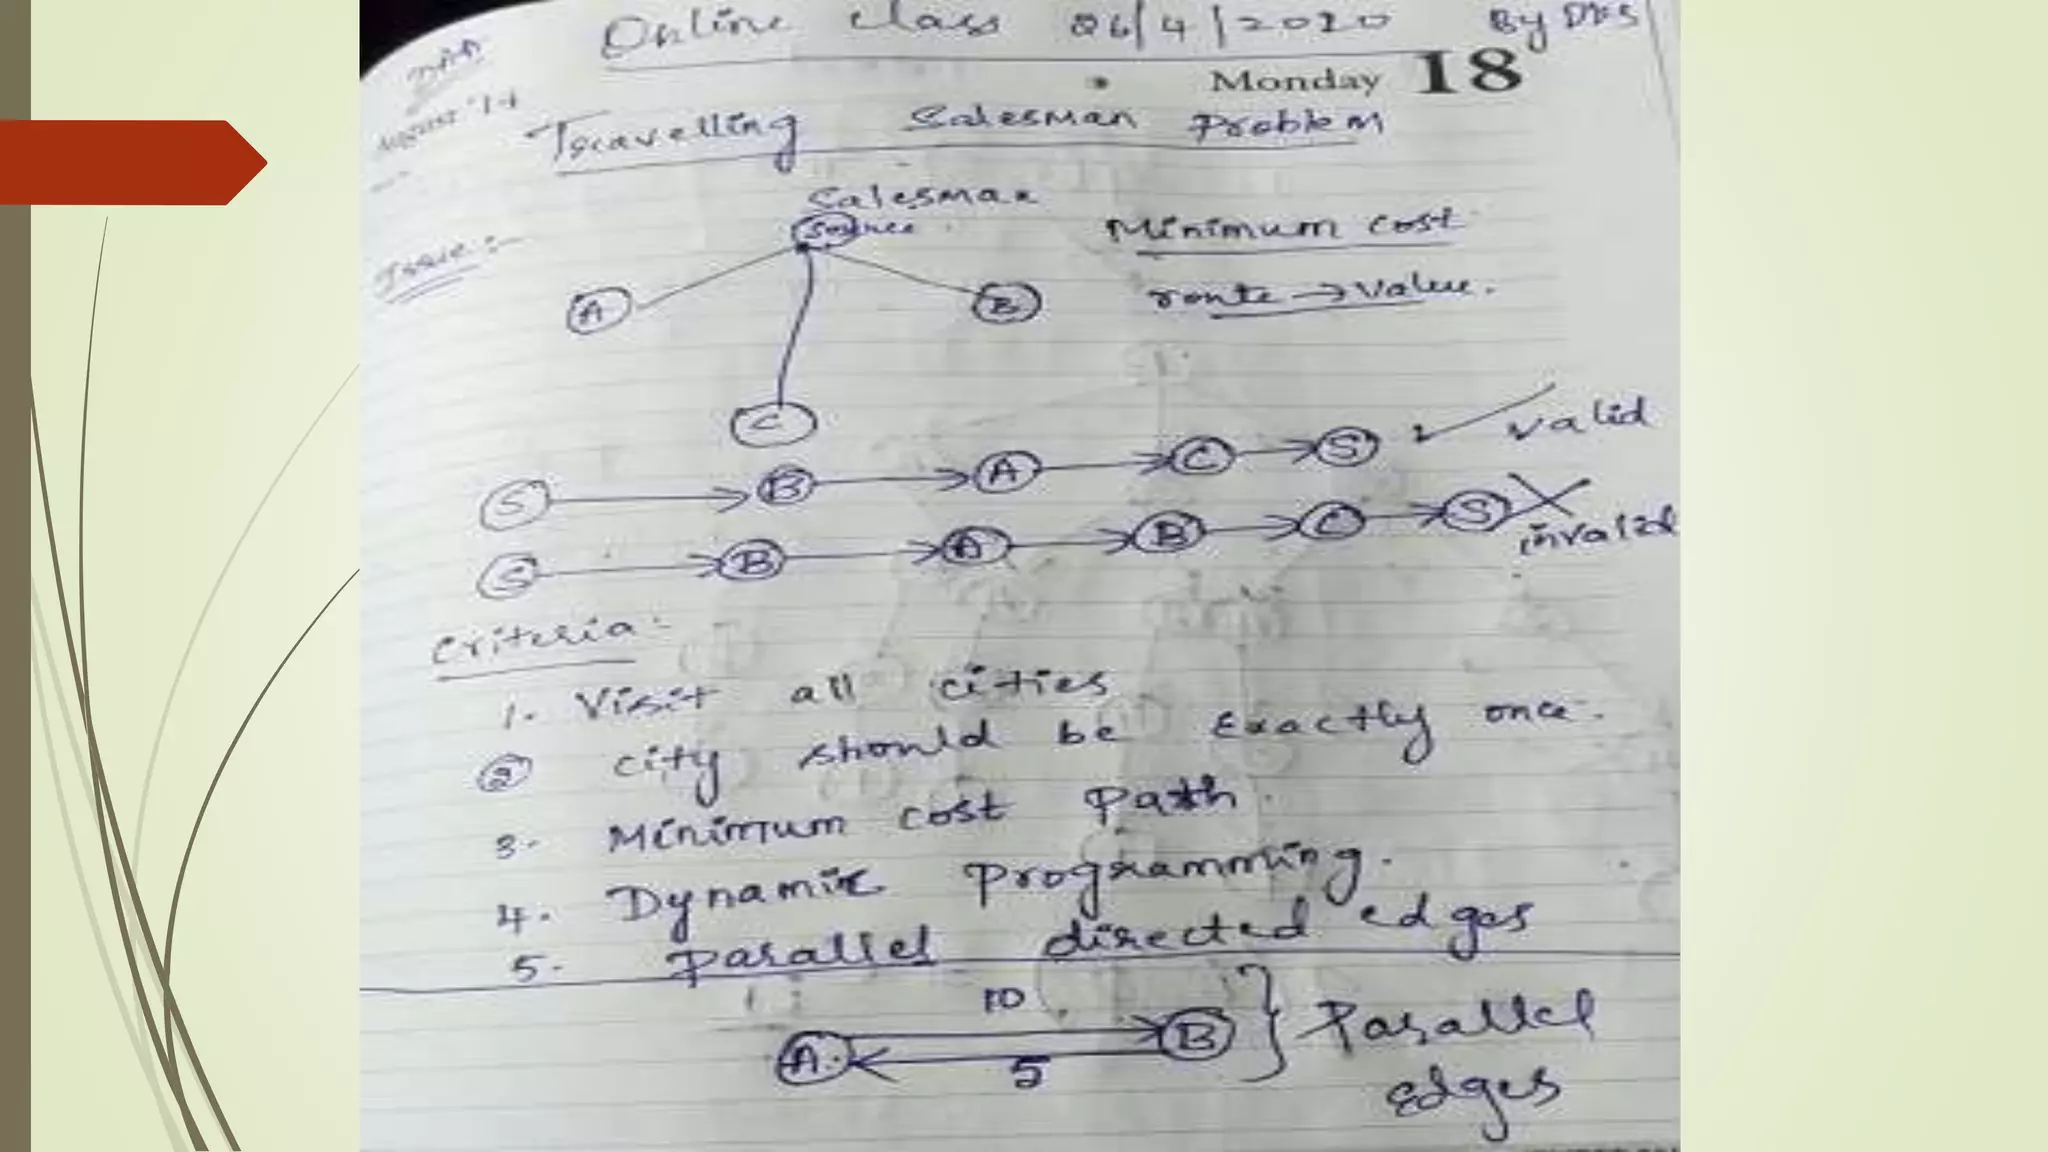 Online class 26/4/2020 By DKS
Monday 18
August '14
Travelling Salesman Problem
Salesman
Source
Issue:-
Minimum cost
route → value.
A
B
C
S → B → A → C → S ✓ valid
S → B → A → B → C → S ✗ invalid
Criteria:-
1. Visit all cities
② city should be Exactly once.
3. Minimum cost Path.
4. Dynamic Programming.
5. Parallel directed edges
10
A B } Parallel
5
Edges